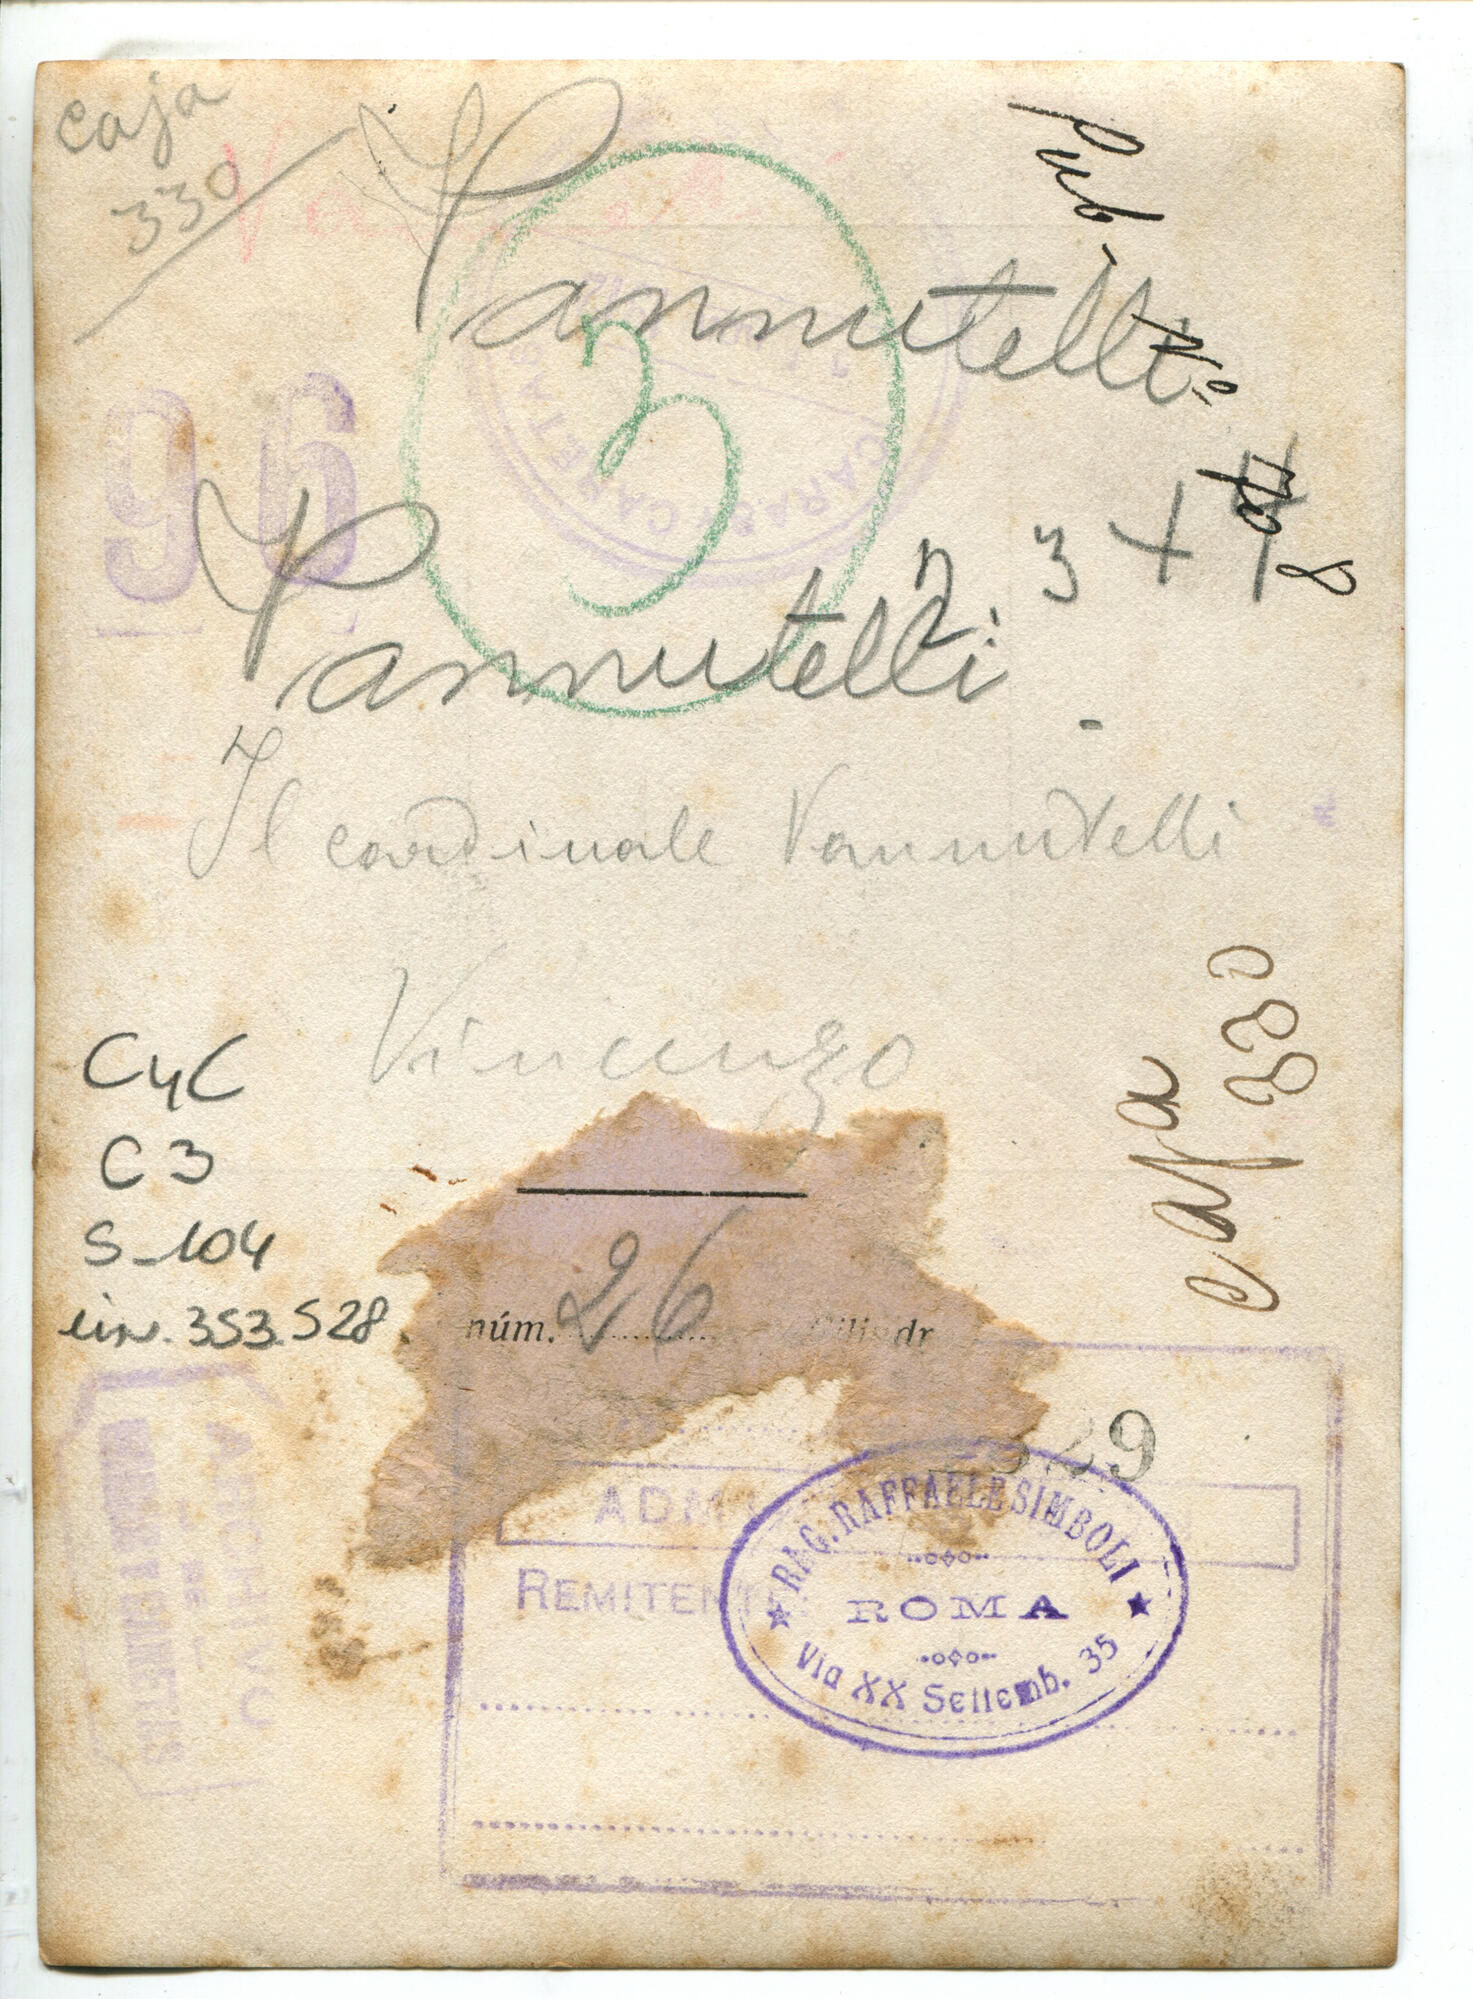 Caja
330
Vannutelli
Pub.
Nº
8
3
96
CARAS Y CARETAS
Vannutelli
2 3 +
Il cardinale Vannutelli
Vincenzo
CyC
C3
S-104
inv. 353.528.
caja
330
núm. 26
29
ADM
REMITENTE
RAG. RAFFAELE SIMBOLI
ROMA
Via XX Settemb. 35
ARCHIVO